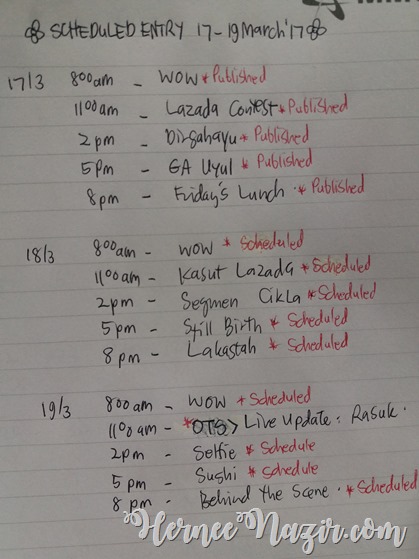 SCHEDULED ENTRY 17-19 March'17
17/3 800am - WOW *Published
1100am - Lazada Contest *Published
2pm - Dirgahayu *Published
5pm - GA Uyul *Published
8pm - Friday's Lunch *Published
18/3 800am - WOW *Scheduled
1100am - Kasut Lazada *Scheduled
2pm - Segmen Cikla *Scheduled
5pm - Still Birth *Scheduled
8pm - Lakastah *Scheduled
19/3 800am - WOW *Scheduled
1100am - *OTS> Live Update: Rasuk.
2pm - Selfie *Schedule
5pm - Sushi *Schedule
8pm - Behind The Scene. *Scheduled
HerneeNazir.com